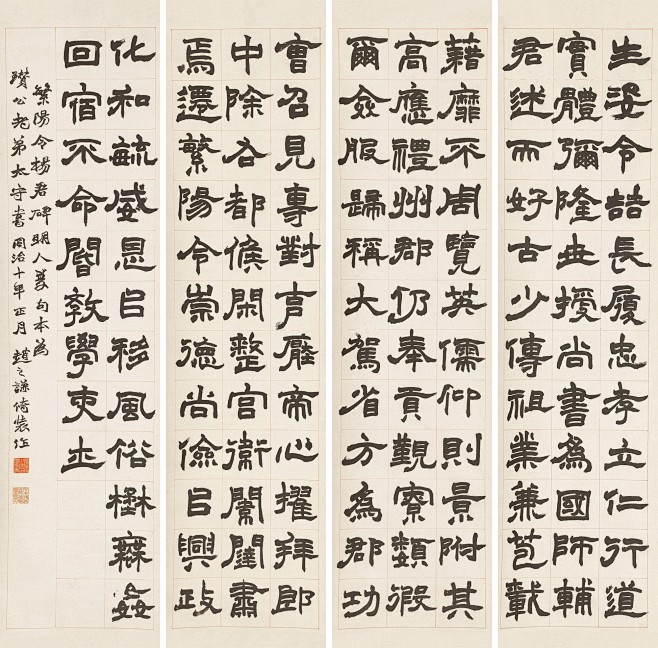 生姿令喆長履忠孝立仁行道
實體彌隆世授尚書為國師輔
君述而好古少傳祖業兼苞載
藉靡不周覽英儒仰則景附其
高應禮州郡仍奉貢覲寮類假
爾僉服歸稱大駕省方為郡功
曹召見專對亯廱帝心擢拜郎
中除右都候閑整宮衛闈闥肅
焉遷繁陽令崇德尚儉㠯興政
化和毓威恩㠯移風俗姦
回宿不命閽敎學吏士
繁陽令楊君碑明人雙句本為
瓚公老弟太守書同治十年正月趙之謙倚裝作